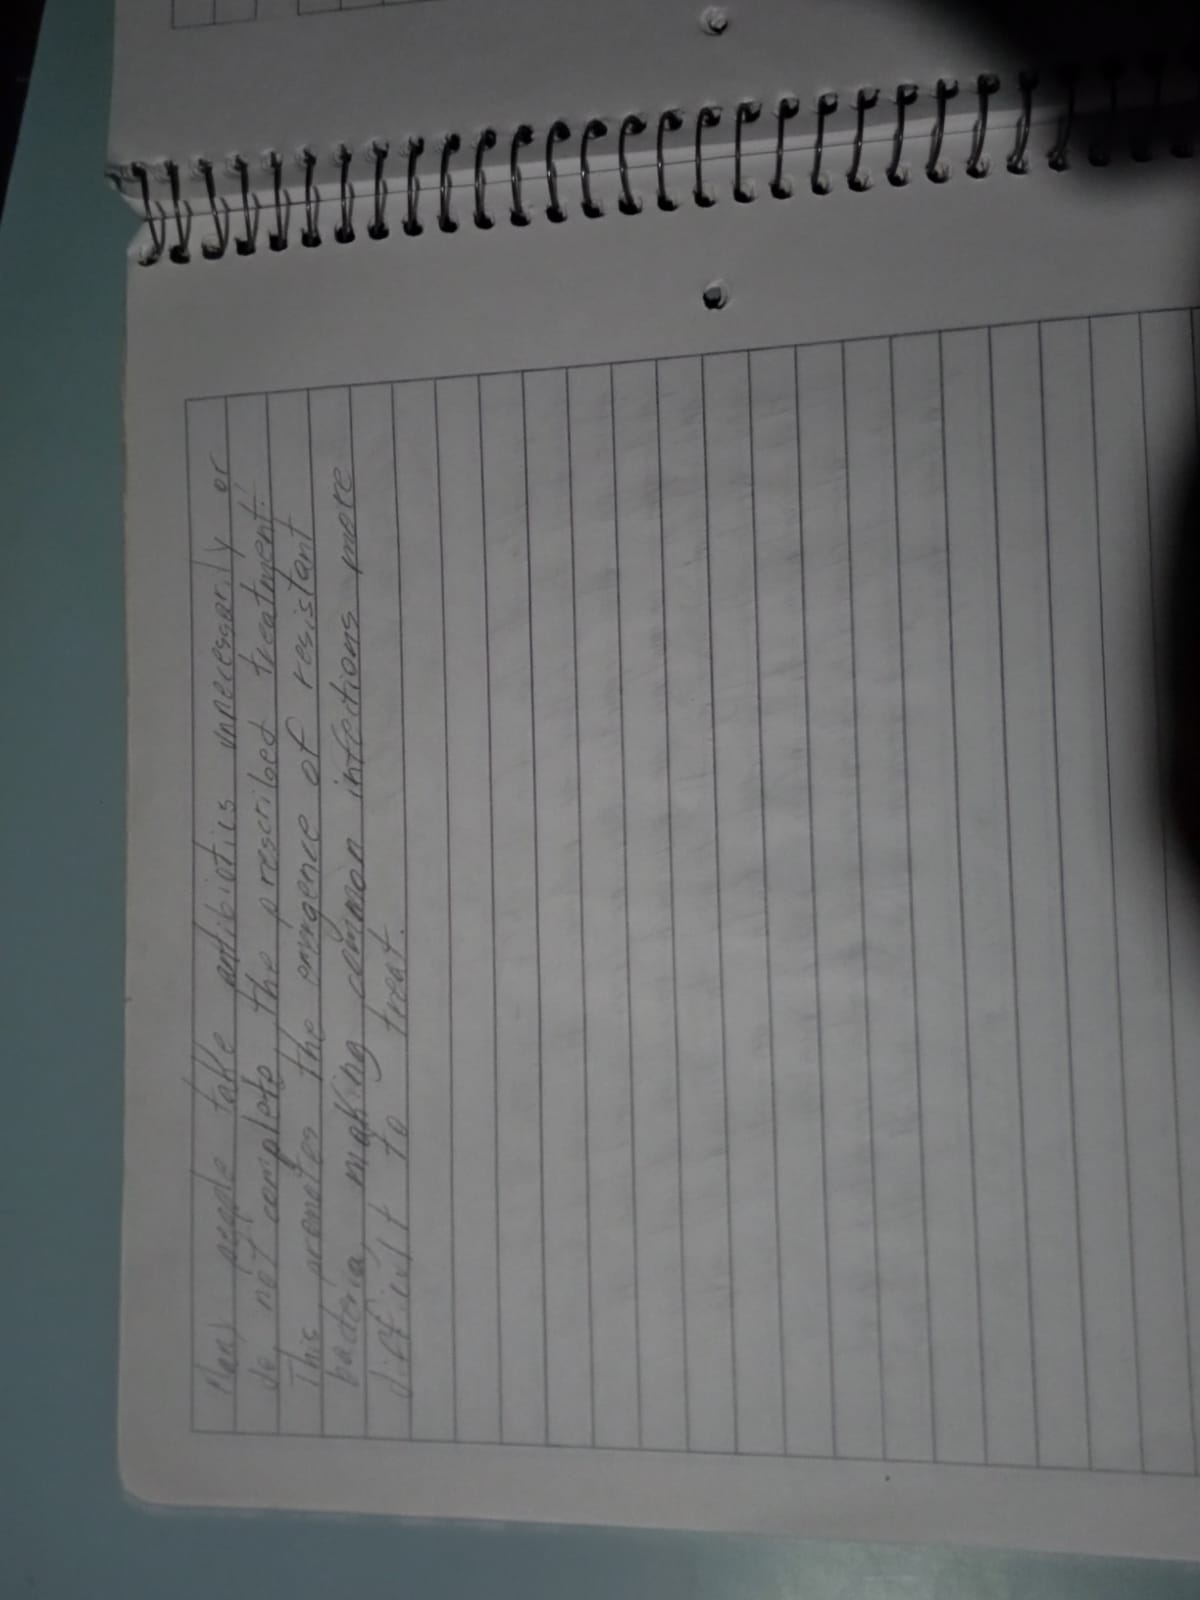 Many people take antibiotics unnecessarily or
do not complete the prescribed treatment.
This promotes the emergence of resistant
bacteria, making common infections more
difficult to treat.